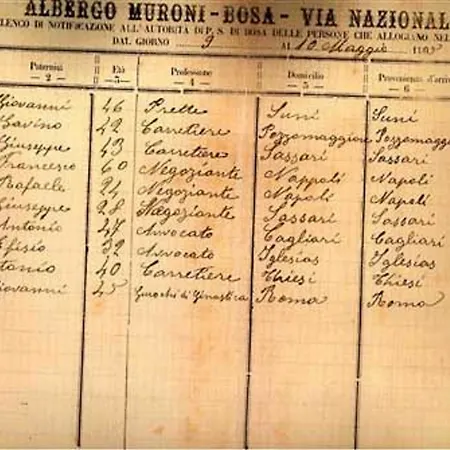 ALBERGO MURONI-BOSA-VIA NAZIONAL
LENCO DI NOTIFICAZIONE ALL'AUTORITÀ DI P. S. DI BOSA DELLE PERSONE CHE ALLOGIANO NEL
DAL GIORNO 9 AL 10 Maggio
Paternità Età Professione Domicilio Provenienza d'arrivo
2 3 4 5 6
Giovanni 46 Prette Suni Suni
Gavino 42 Carretiere Pozzomaggiore Pozzomaggi
Giuseppe 43 Carretiere Sassari Sassari
Francesco 60 Negoziante Nappoli Napoli
Rafaele 24 Negoziante Napoli Napoli
Giuseppe 28 Nagoziante Sassari Sassari
Antonio 47 Avvocato Cagliari Cagliari
Efisio 32 Avvocato Iglesias Iglesias
ntonio 40 Carretiere Thiesi Thiesi
iovanni 45 di Ginastica Roma Roma